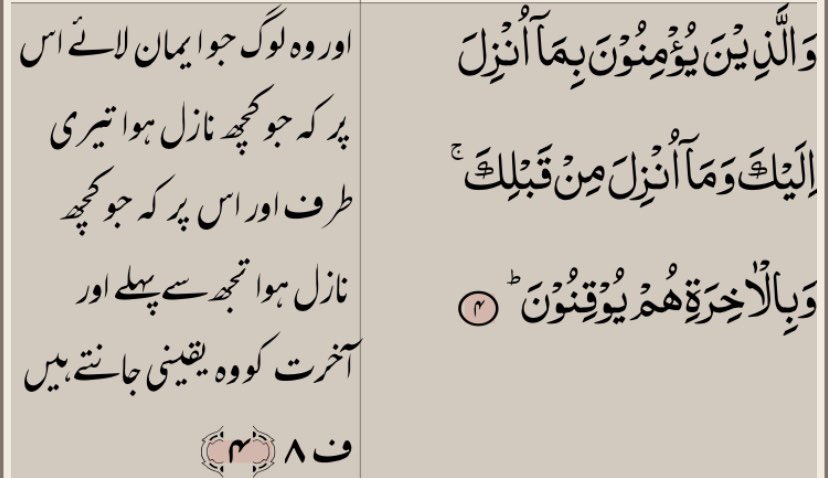 وَالَّذِیْنَ یُؤْمِنُوْنَ بِمَاۤ اُنْزِلَ
اِلَیْكَ وَمَاۤ اُنْزِلَ مِنْ قَبْلِكَ ۚ
وَبِالْاٰخِرَةِ هُمْ یُوْقِنُوْنَ ؕ ۴
اور وہ لوگ جو ایمان لائے اس
پر کہ جو کچھ نازل ہوا تیری
طرف اور اس پر کہ جو کچھ
نازل ہوا تجھ سے پہلے اور
آخرت کو وہ یقینی جانتے ہیں
ف ۸ ﴿۴﴾